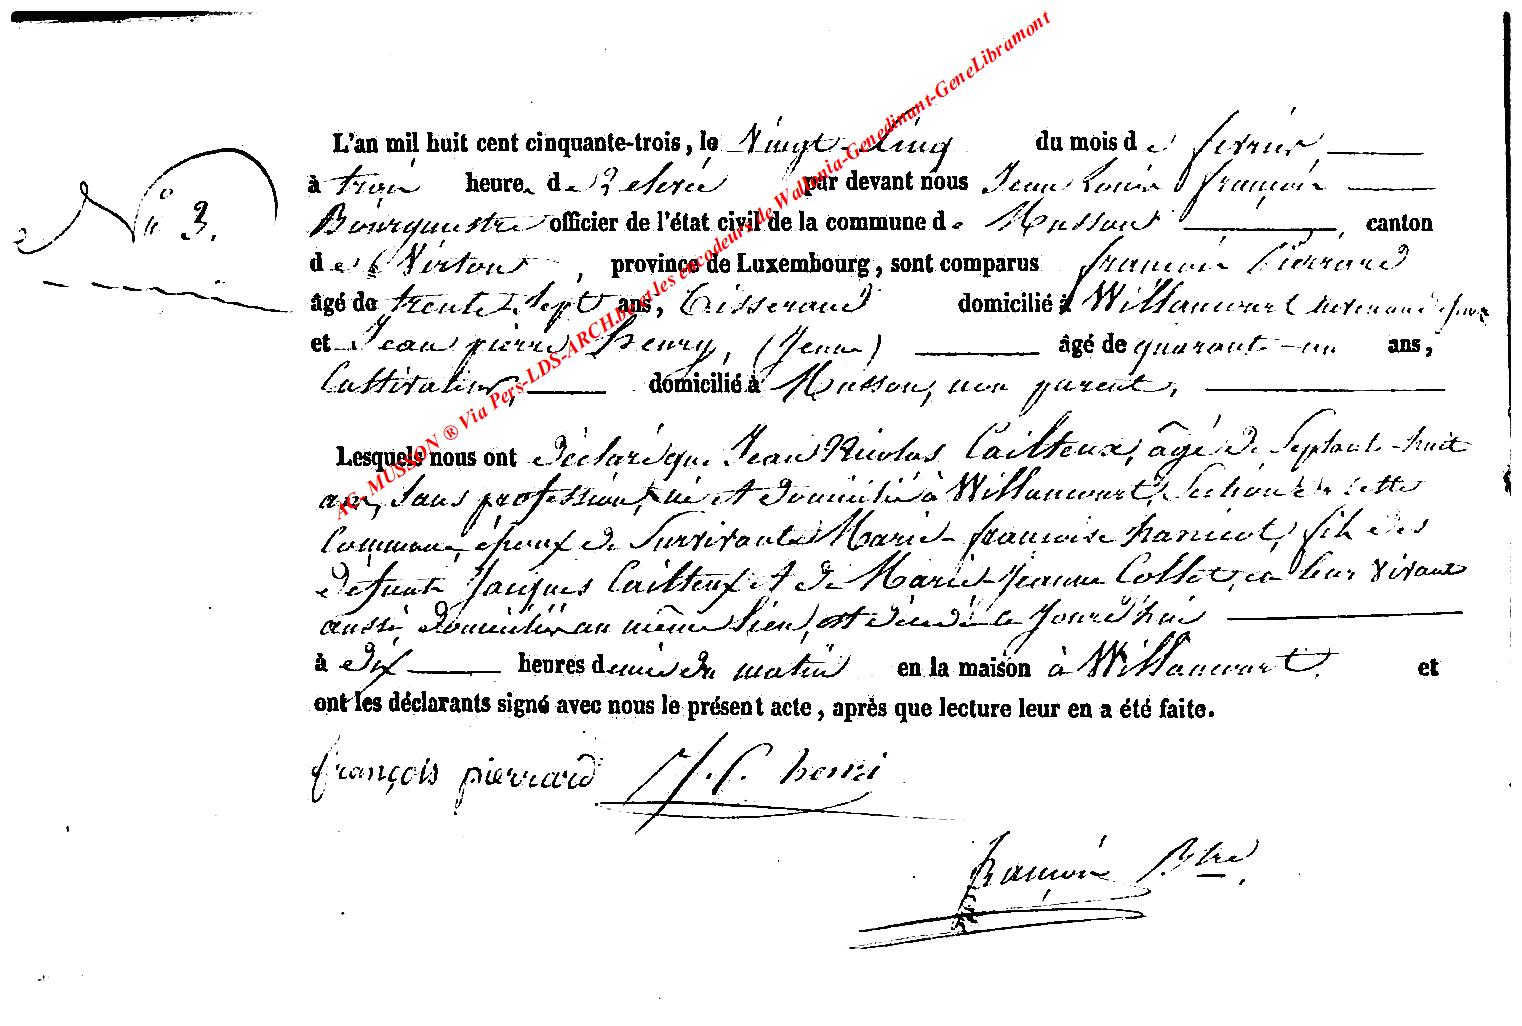 AC. MUSSON ® Via Pers-LDS-ARCH.be et les encodeurs de Wallonia-Genedinant-GeneLibramont
L'an mil huit cent cinquante-trois, le Vingt-Cinq du mois de février
N° 3.
à trois heure de relevée par devant nous Jean Louis françois
Bourgmestre officier de l'état civil de la commune de Musson, canton
de Virton, province de Luxembourg, sont comparus françois Pierrard
âgé de trente-sept ans, Tisserand domicilié à Willancourt
et Jean pierre henry, (Jeune) âgé de quarante-un ans,
Cultivateur, domicilié à Musson, non parent,
Lesquels nous ont déclaré que Jean Nicolas Cailteux, âgé de Septante-huit
ans, Sans profession, né et domicilié à Willancourt, Section de cette
Commune, époux de Survivante Marie-françoise hanicot, fils des
défunts Jacques Cailteux et de Marie-Jeanne Collet, en leur vivant
aussi domiciliés au même lieu, est décédé ce Jourd'hui
à dix heures demie du matin en la maison à Willancourt. et
ont les déclarants signé avec nous le présent acte, après que lecture leur en a été faite.
françois pierrard J. P. henri
françois Btre.